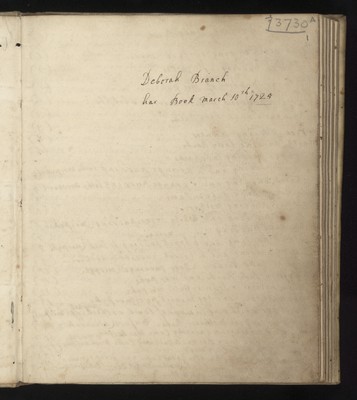 3730
1
Deborah Branch
har Book march 10th